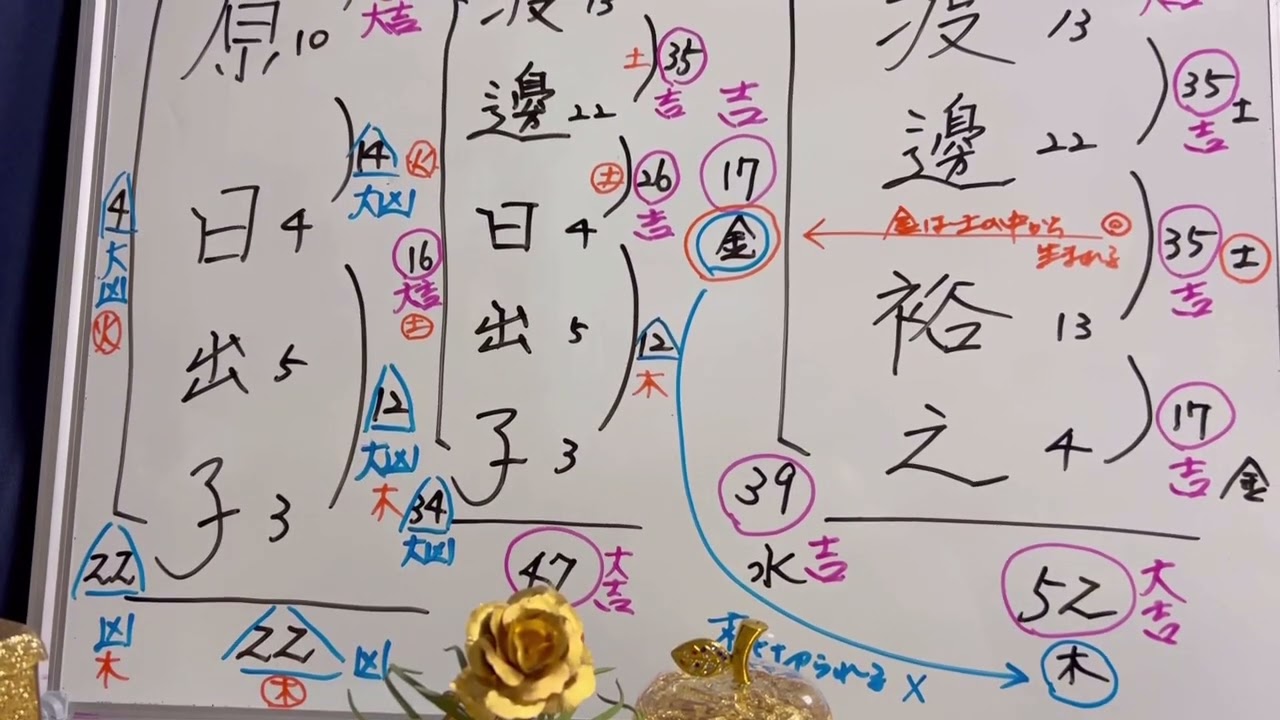 原 10
大吉
日 4
出 5
子 3
14 火
大凶
12
大凶
木
4
大
凶
火
22
凶
木
22 凶
木
13
邊 22
日 4
出 5
子 3
土 35
吉
土 26
吉
12
木
16
大吉
土
34
大凶
47 大吉
吉
17
金
13
邊 22
裕 13
之 4
35 土
吉
35 土
吉
17
吉 金
金は土の中から
生まれる
39
水 吉
52 大吉
木